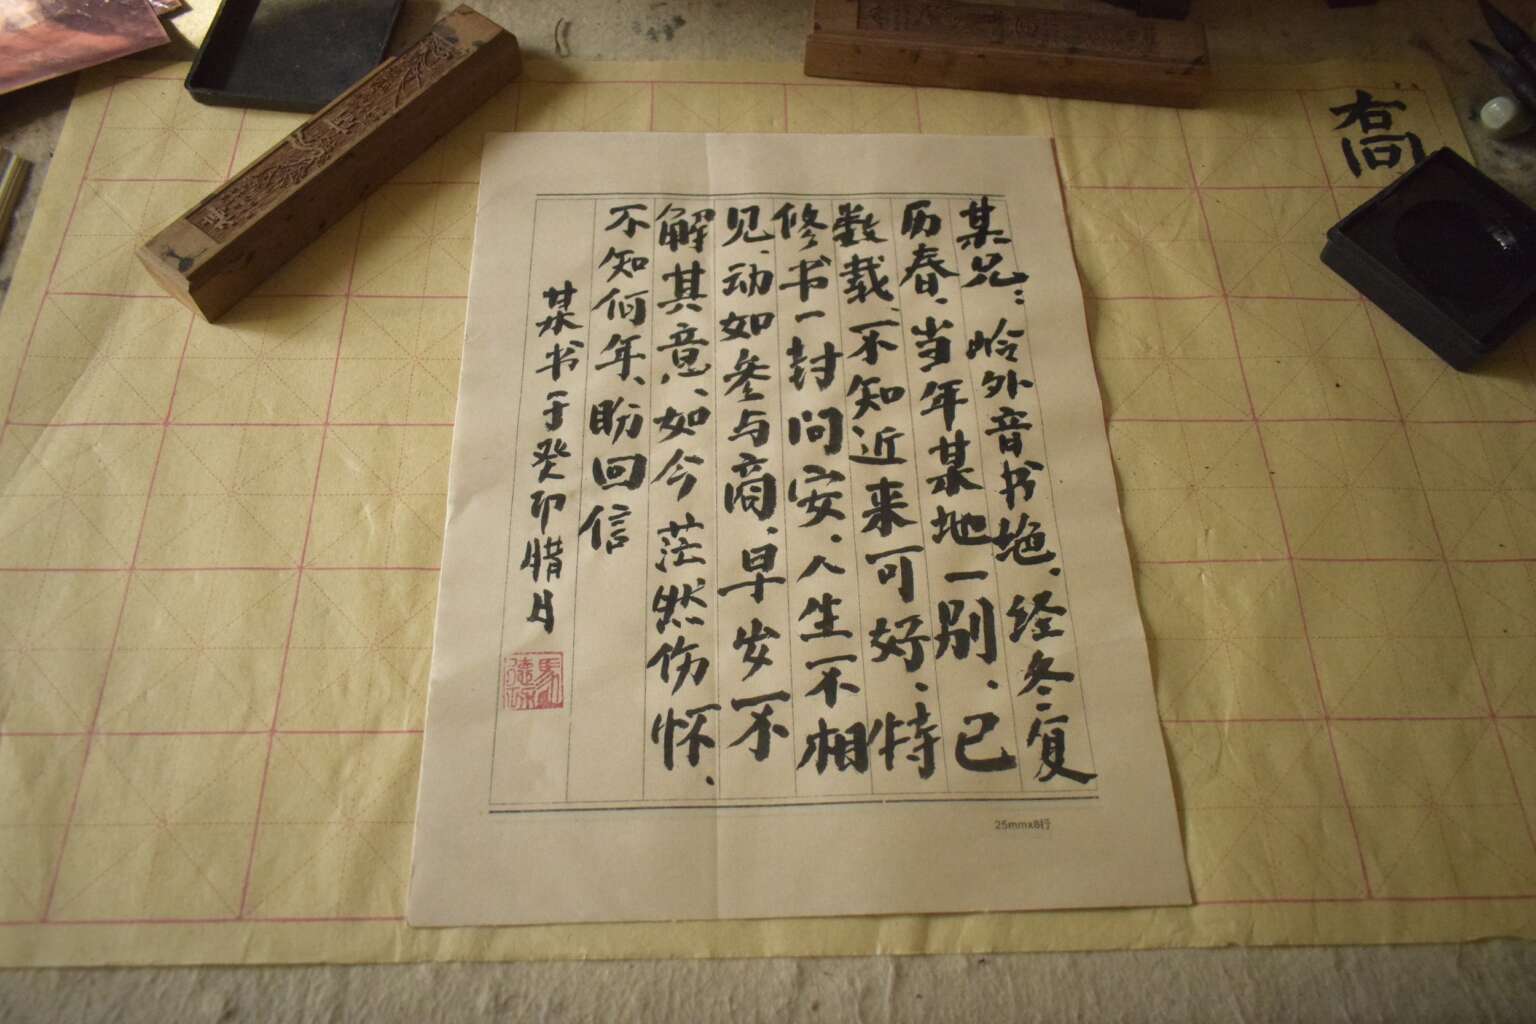 某兄：岭外音书绝、经冬复
历春、当年某地一别、已
数载、不知近来可好、特
修书一封问安、人生不相
见、动如参与商、早岁不
解其意、如今茫然伤怀、
不知何年、盼回信
某书于癸卯腊月
25mmx8行
右向